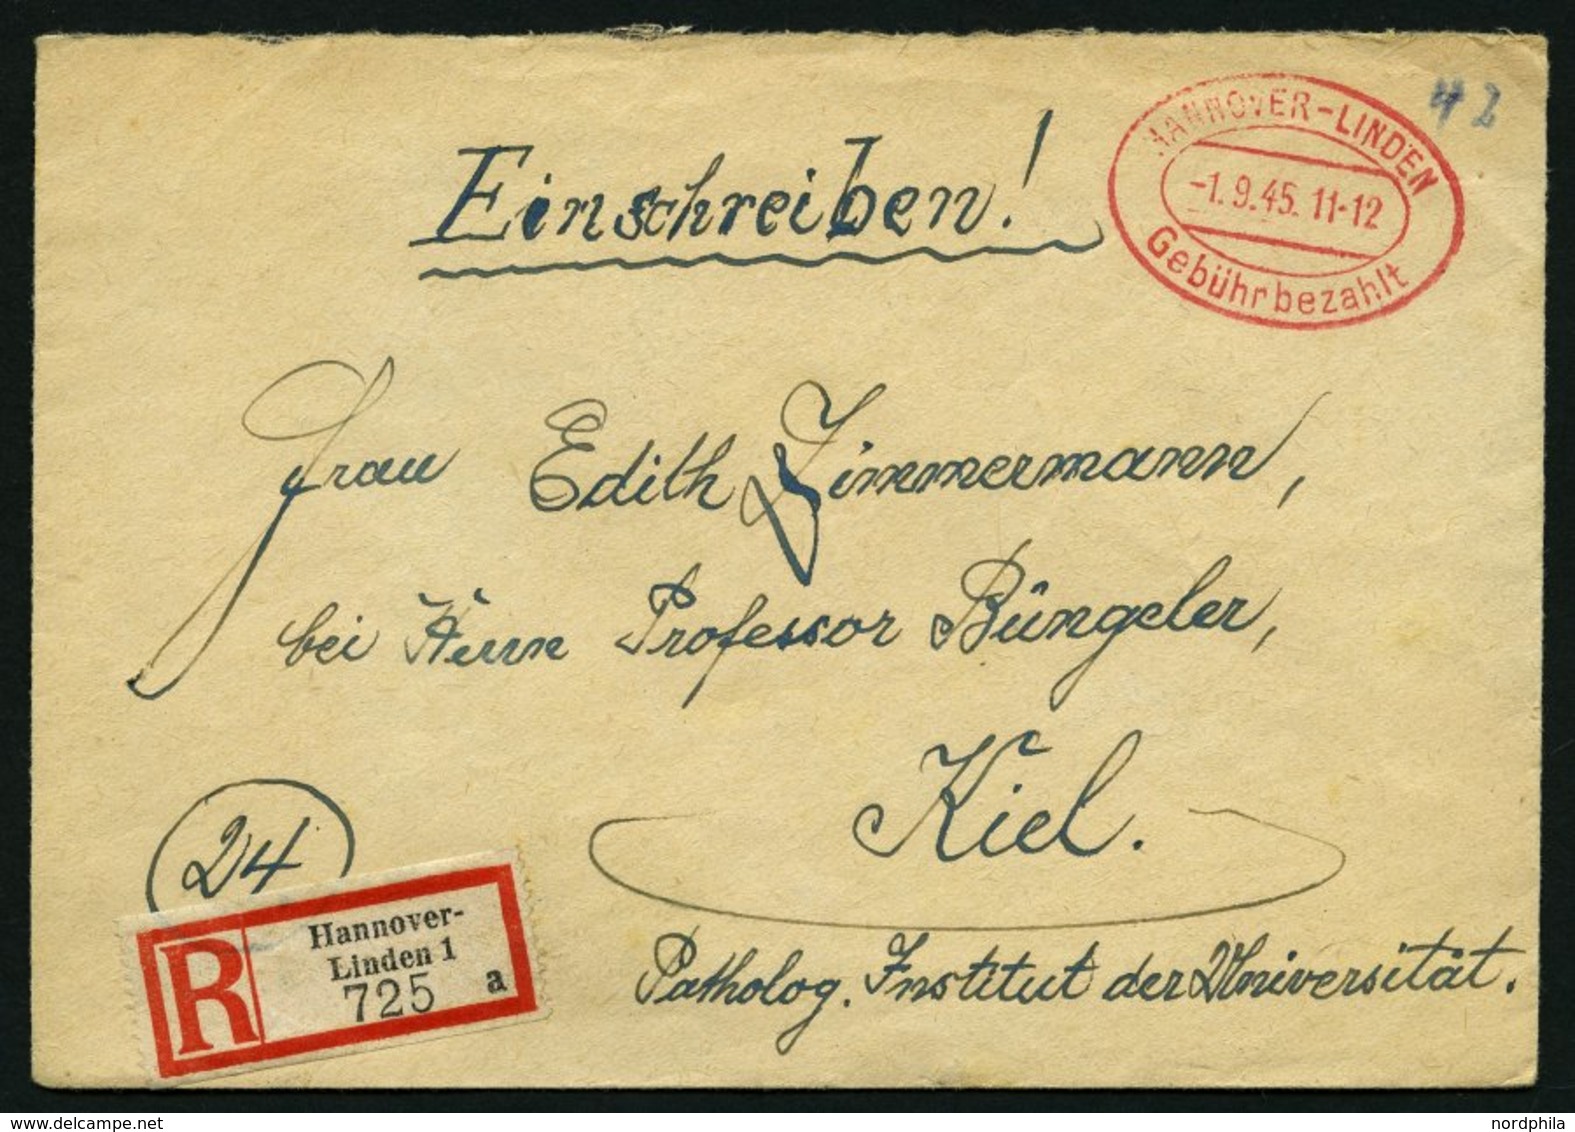 42
HANNOVER-LINDEN
-1.9.45. 11-12
Gebühr bezahlt
Einschreiben!
Frau Edith Zimmermann,
bei Herrn Professor Büngeler,
Kiel.
24
Patholog. Institut der Universität.
R
Hannover-
Linden 1
725 a
nordphila